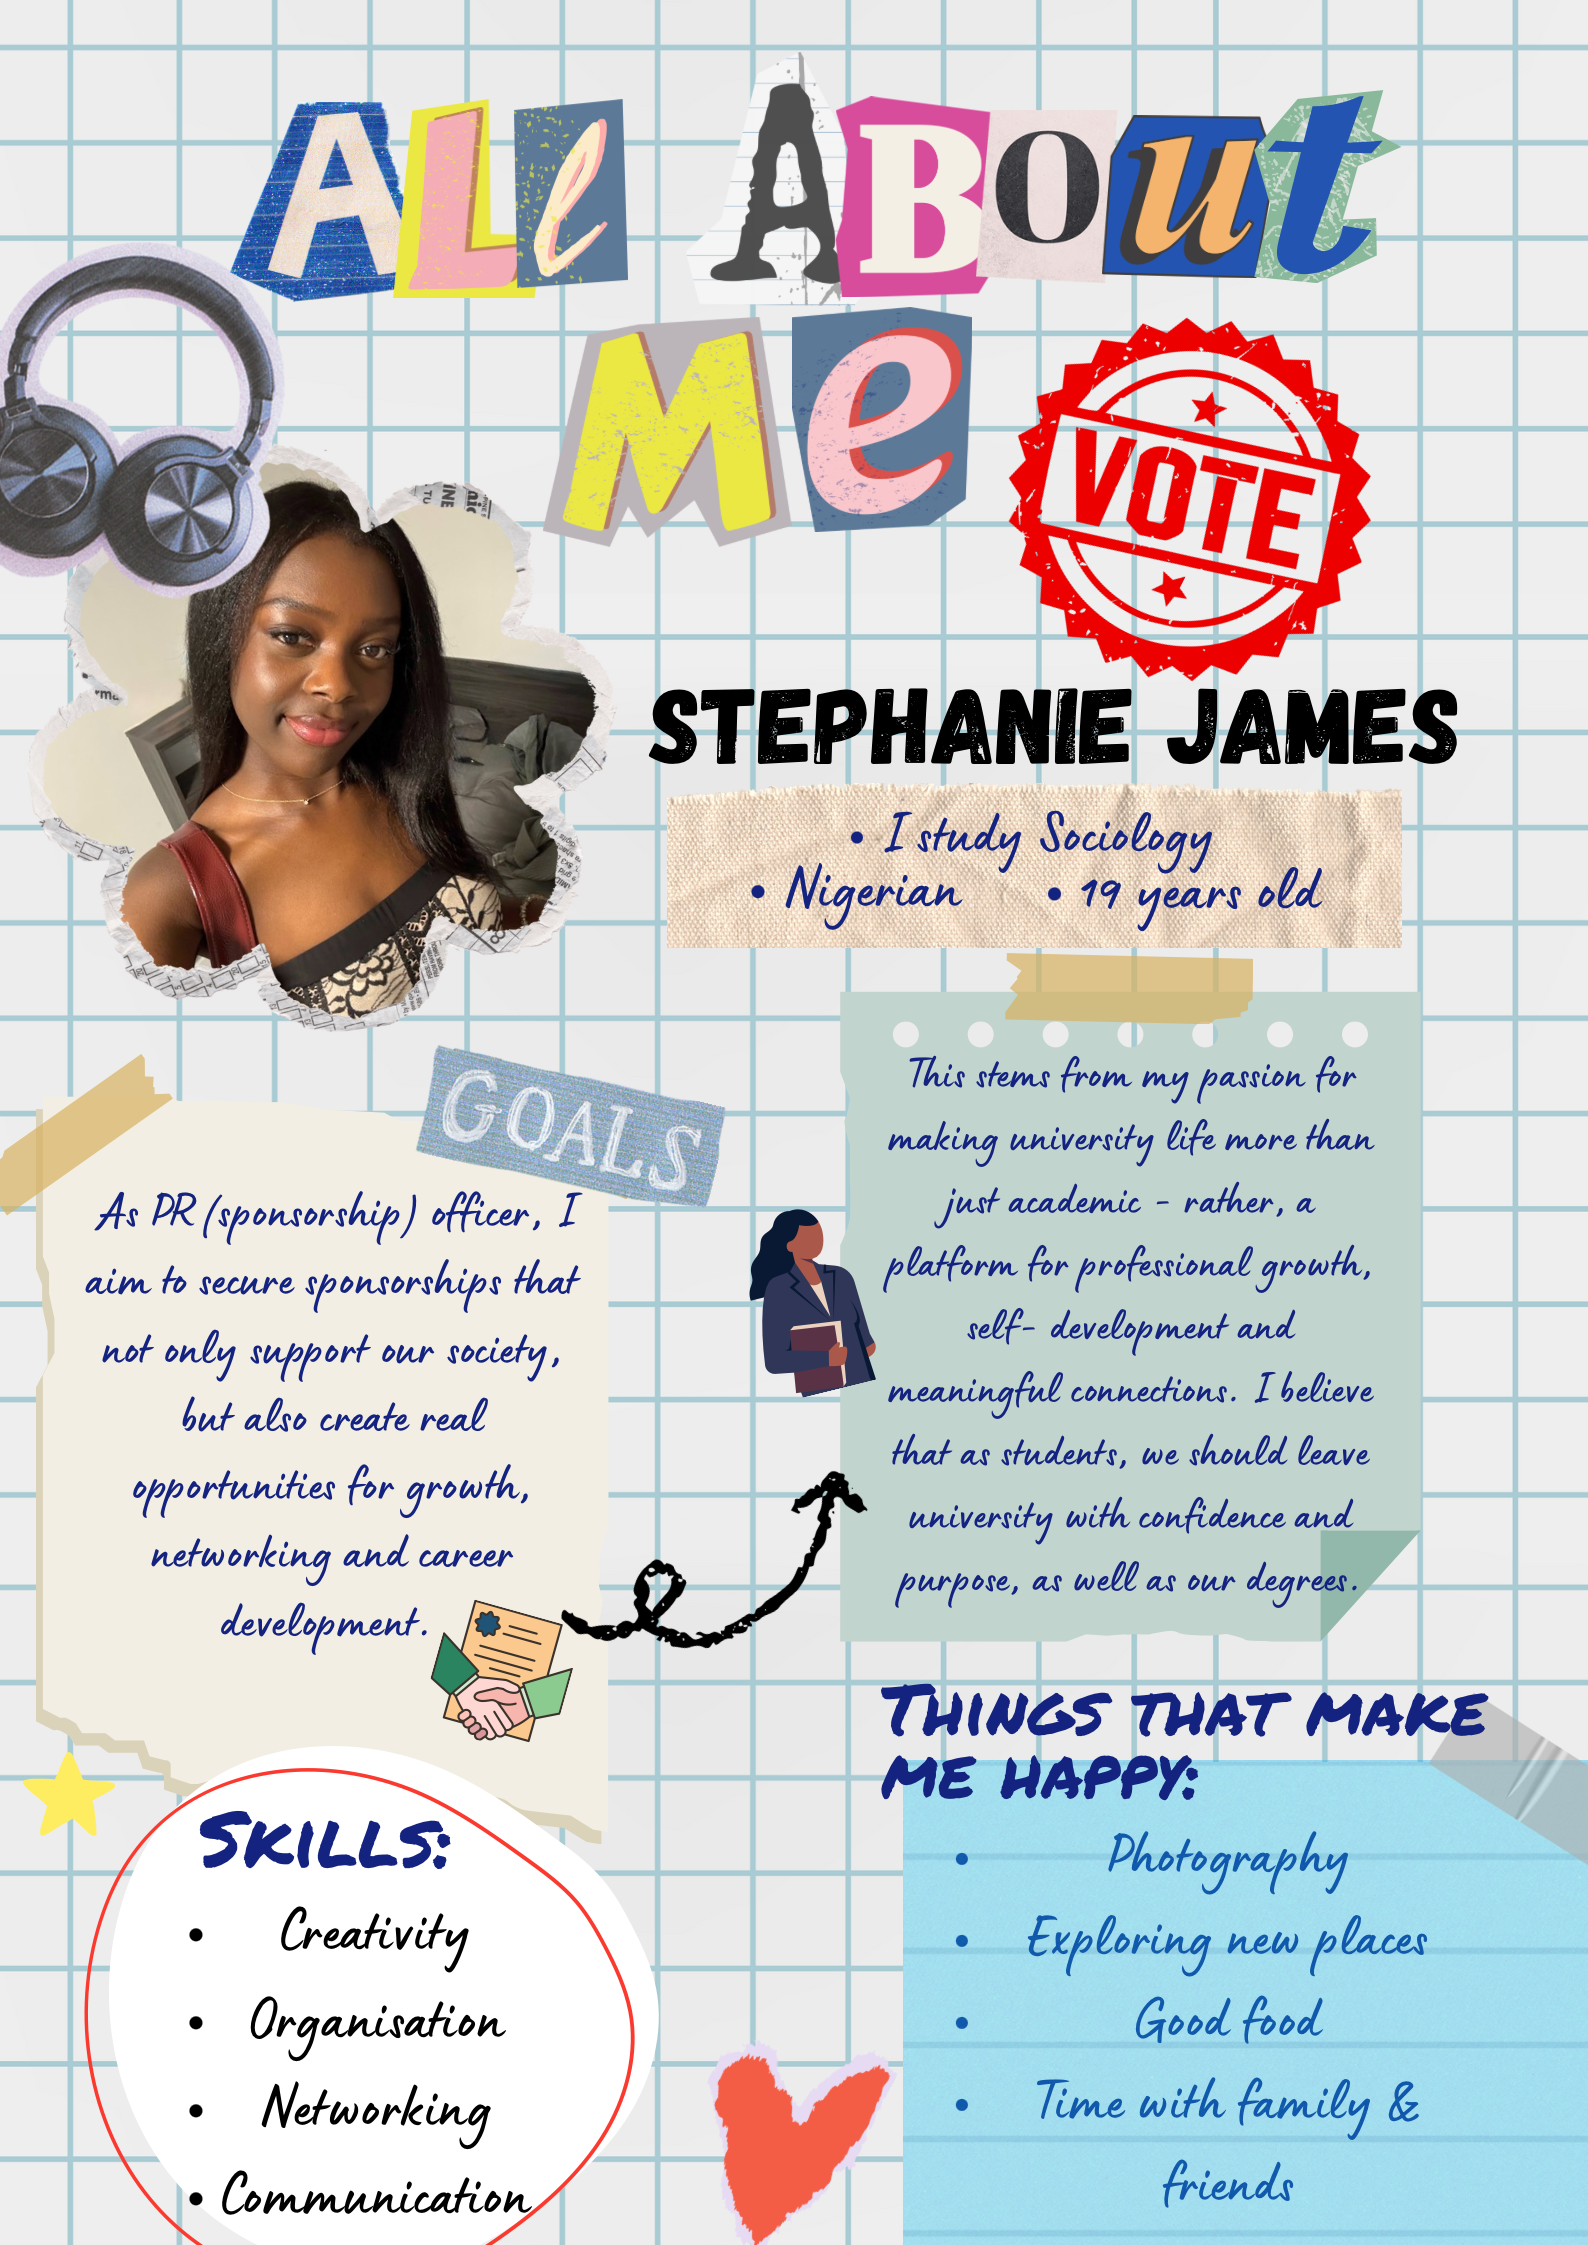 ALL ABOUT
Me
VOTE
STEPHANIE JAMES
• I study Sociology
• Nigerian • 19 years old
GOALS
As PR (sponsorship) officer, I
aim to secure sponsorships that
not only support our society,
but also create real
opportunities for growth,
networking and career
development.
This stems from my passion for
making university life more than
just academic - rather, a
platform for professional growth,
self- development and
meaningful connections. I believe
that as students, we should leave
university with confidence and
purpose, as well as our degrees.
SKILLS:
• Creativity
• Organisation
• Networking
• Communication
THINGS THAT MAKE
ME HAPPY:
• Photography
• Exploring new places
• Good food
• Time with family &
friends